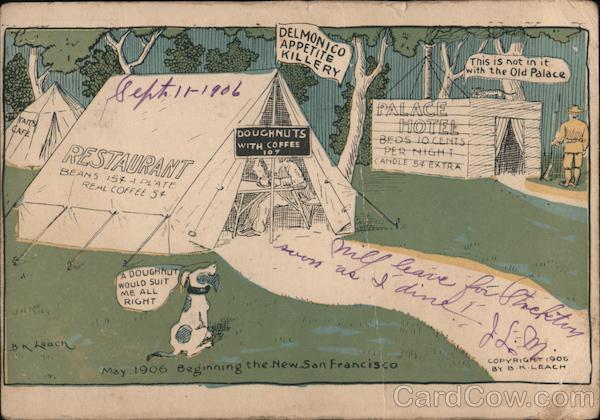 DELMONICO
APPETITE
KILLERY
This is not in it
with the Old Palace
Sept. 11-1906
TAIT'S
CAFE
PALACE
HOTEL
BEDS 10 CENTS
PER NIGHT
CANDLE 5¢ EXTRA
DOUGHNUTS
WITH COFFEE
10¢
RESTAURANT
BEANS 15¢ A PLATE
REAL COFFEE 5¢
Will leave for Stockton
soon as I dine!
J.L.M.
A DOUGHNUT
WOULD SUIT
ME ALL
RIGHT
B K Leach
May, 1906 Beginning the New San Francisco
COPYRIGHT 1906
BY B.K. LEACH
CardCow.com